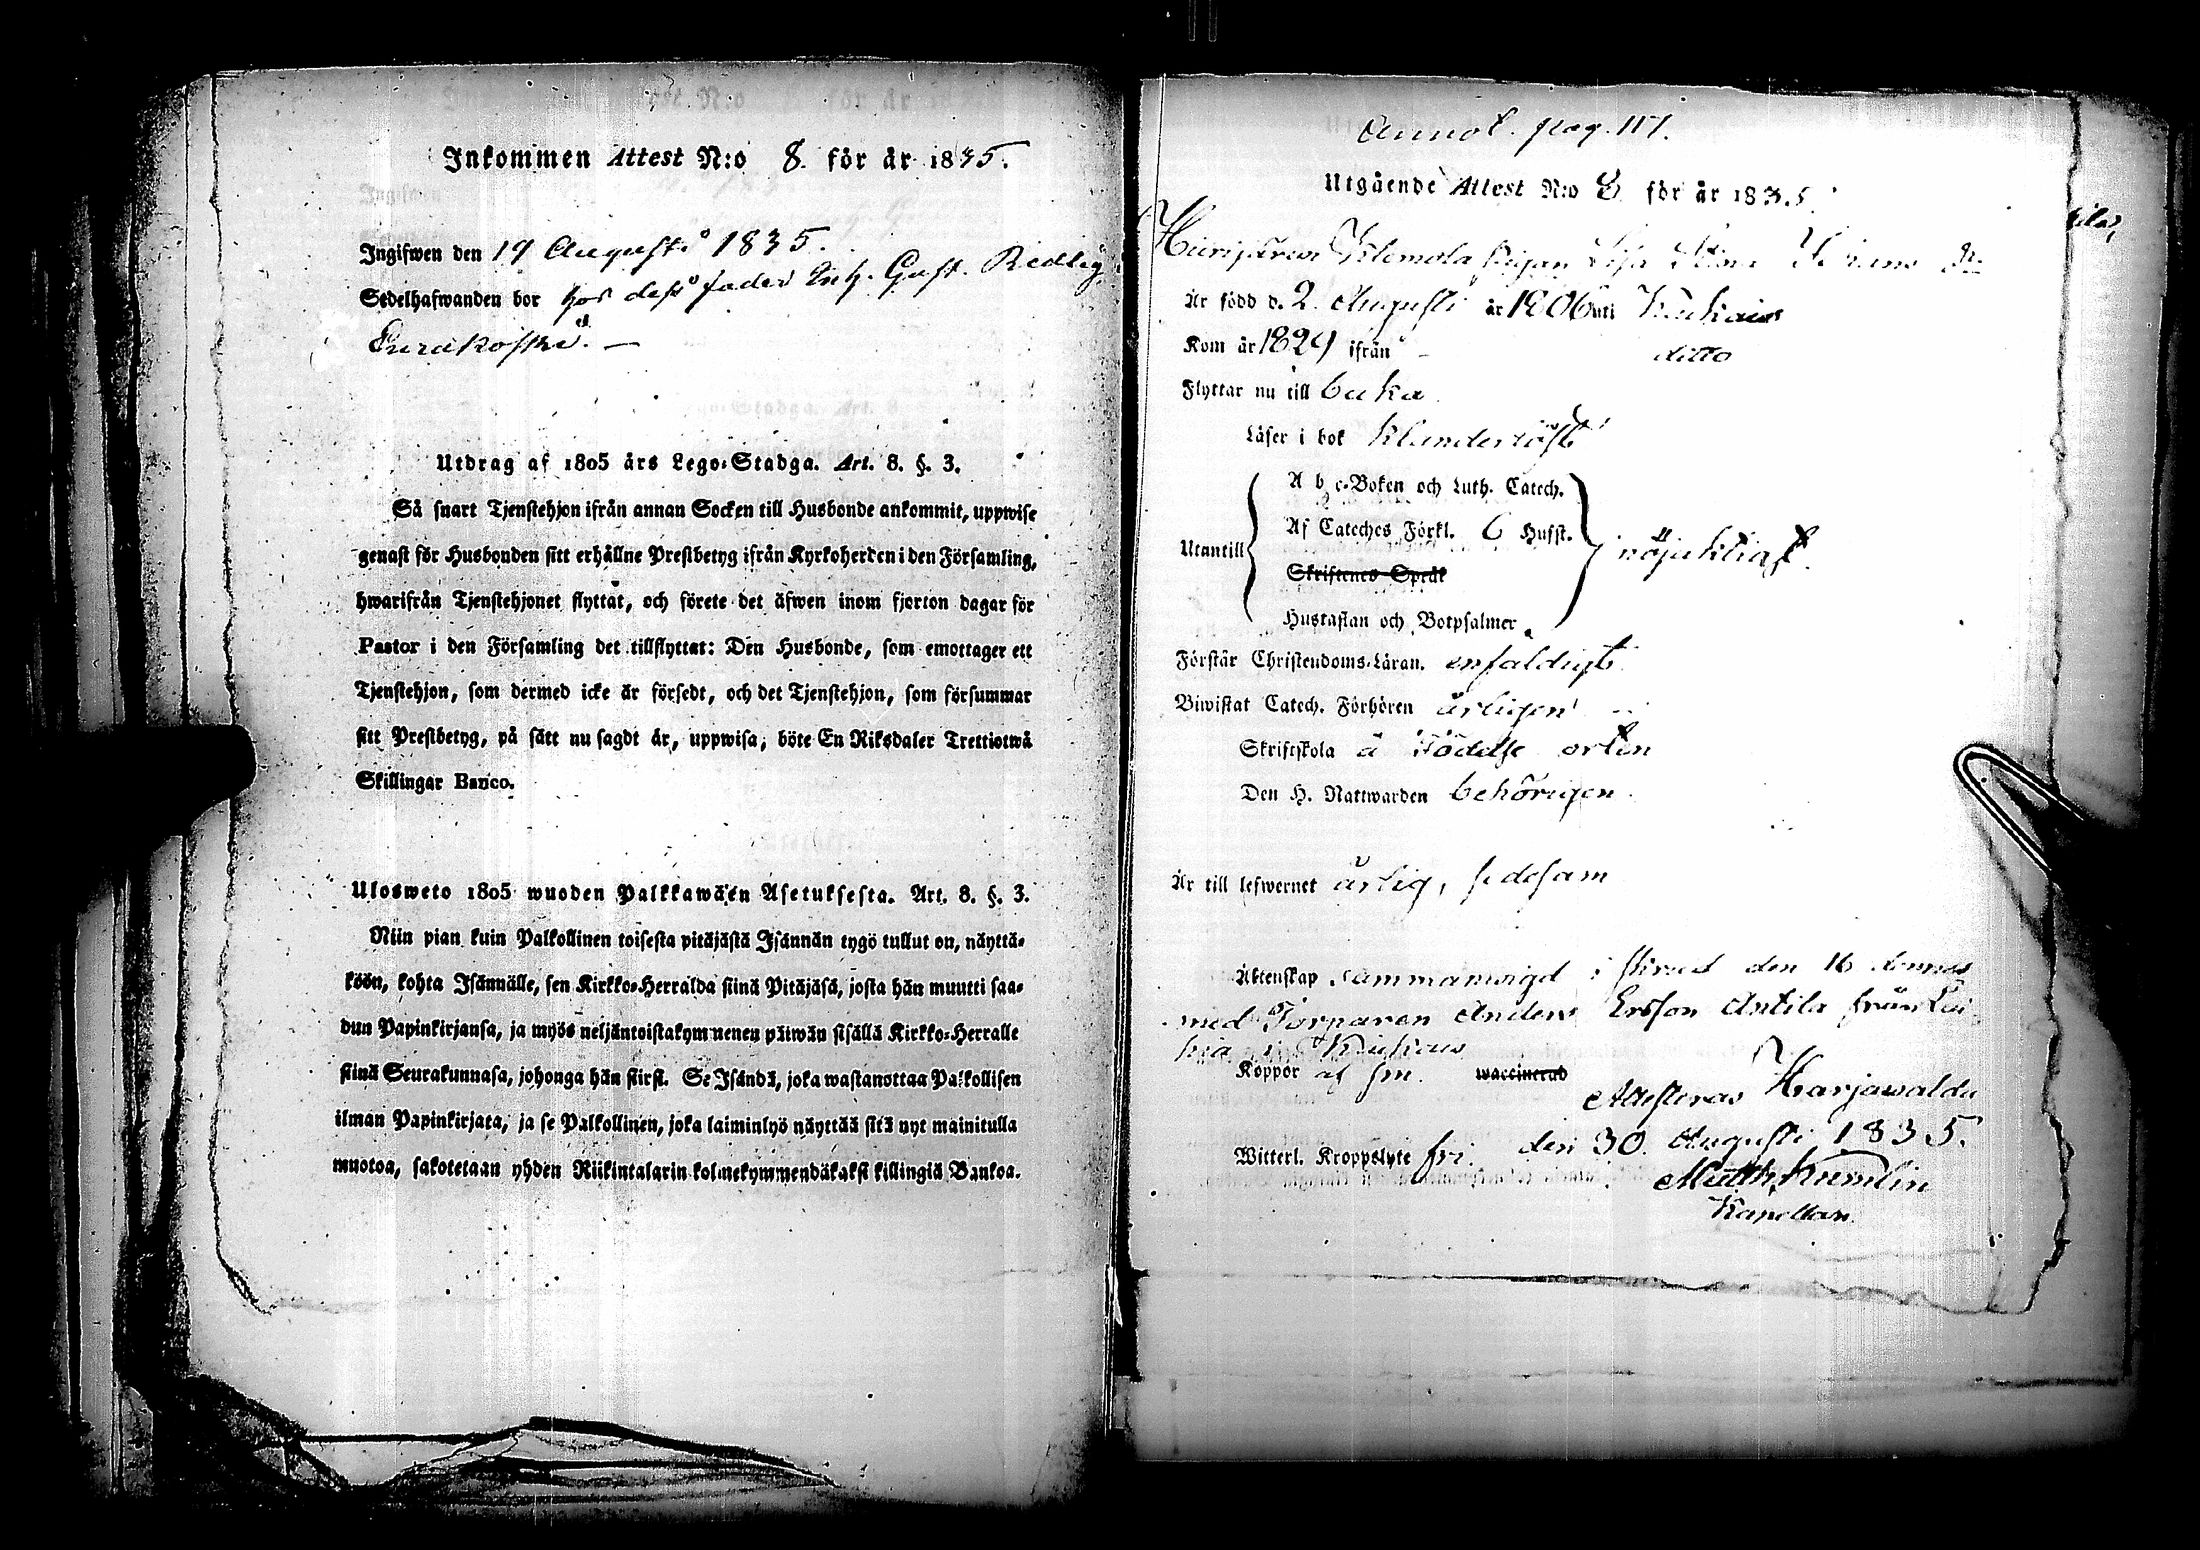 Inkommen Attest N:o 8. för år 1835.
Ingifwen den 19 Augusti 1835.
Sedelhafwanden bor hos dess fader Inh. Gust. Redlig
Eurakoski. —
Utdrag af 1805 års Lego-Stadga. Art. 8. §. 3.
Så snart Tjenstehjon ifrån annan Socken till Husbonde ankommit, uppwise
genast för Husbonden sitt erhållne Prestbetyg ifrån Kyrkoherden i den Församling,
hwarifrån Tjenstehjonet flyttat, och förete det äfwen inom fjorton dagar för
Pastor i den Församling det tillflyttat: Den Husbonde, som emottager ett
Tjenstehjon, som dermed icke är försedt, och det Tjenstehjon, som försummar
sitt Prestbetyg, på sätt nu sagdt är, uppwisa, böte En Riksdaler Trettiotwå
Skillingar Banco.
Ulosweto 1805 wuoden Palkkawäen Asetuksesta. Art. 8. §. 3.
Niin pian kuin Palkollinen toisesta pitäjästä Isännän tygö tullut on, näyttä-
köön, kohta Isännälle, sen Kirkko-Herralda siinä Pitäjäsä, josta hän muutti saa-
dun Papinkirjansa, ja myös neljäntoistakymmenen päiwän sisällä Kirkko-Herralle
siinä Seurakunnasa, johonga hän siirsi. Se Isändä, joka wastanottaa Palkollisen
ilman Papinkirjata, ja se Palkollinen, joka laiminlyö näyttää sitä nyt mainitulla
muotoa, sakotetaan yhden Riikintalarin kolmekymmendäkaksi killingiä Bankoa.
Annot. pag. 117.
Utgående Attest N:o 8 för år 1835.
Klemola pigan Lisa Stina
Är född d. 2. Augusti år 1806 uti Kiukais
Kom år 1829 ifrån ditto
Flyttar nu till
Läser i bok klanderlöst
A b c-Boken och Luth. Catech.
Af Cateches Förkl. 6 Hufst.
Utantill nöjaktigt.
Skriftenes Språk
Hustaflan och Botpsalmer
Förstår Christendoms-Läran. enfaldigt
Biwistat Catech. Förhören årligen
Skriftskola å Födelse orten
Den H. Nattwarden behörigen.
Är till lefwernet ärlig, sedesam
Äktenskap Sammanwigd i stånd den 16 dennes
med Torparen Anders Ersson Antila från
Kiukais
Koppor af sm. waccinerad
Attesteras Harjawalda
Witterl. Kroppslyte fri. den 30. Augusti 1835.
Matth. Kumlin
Kapellan.